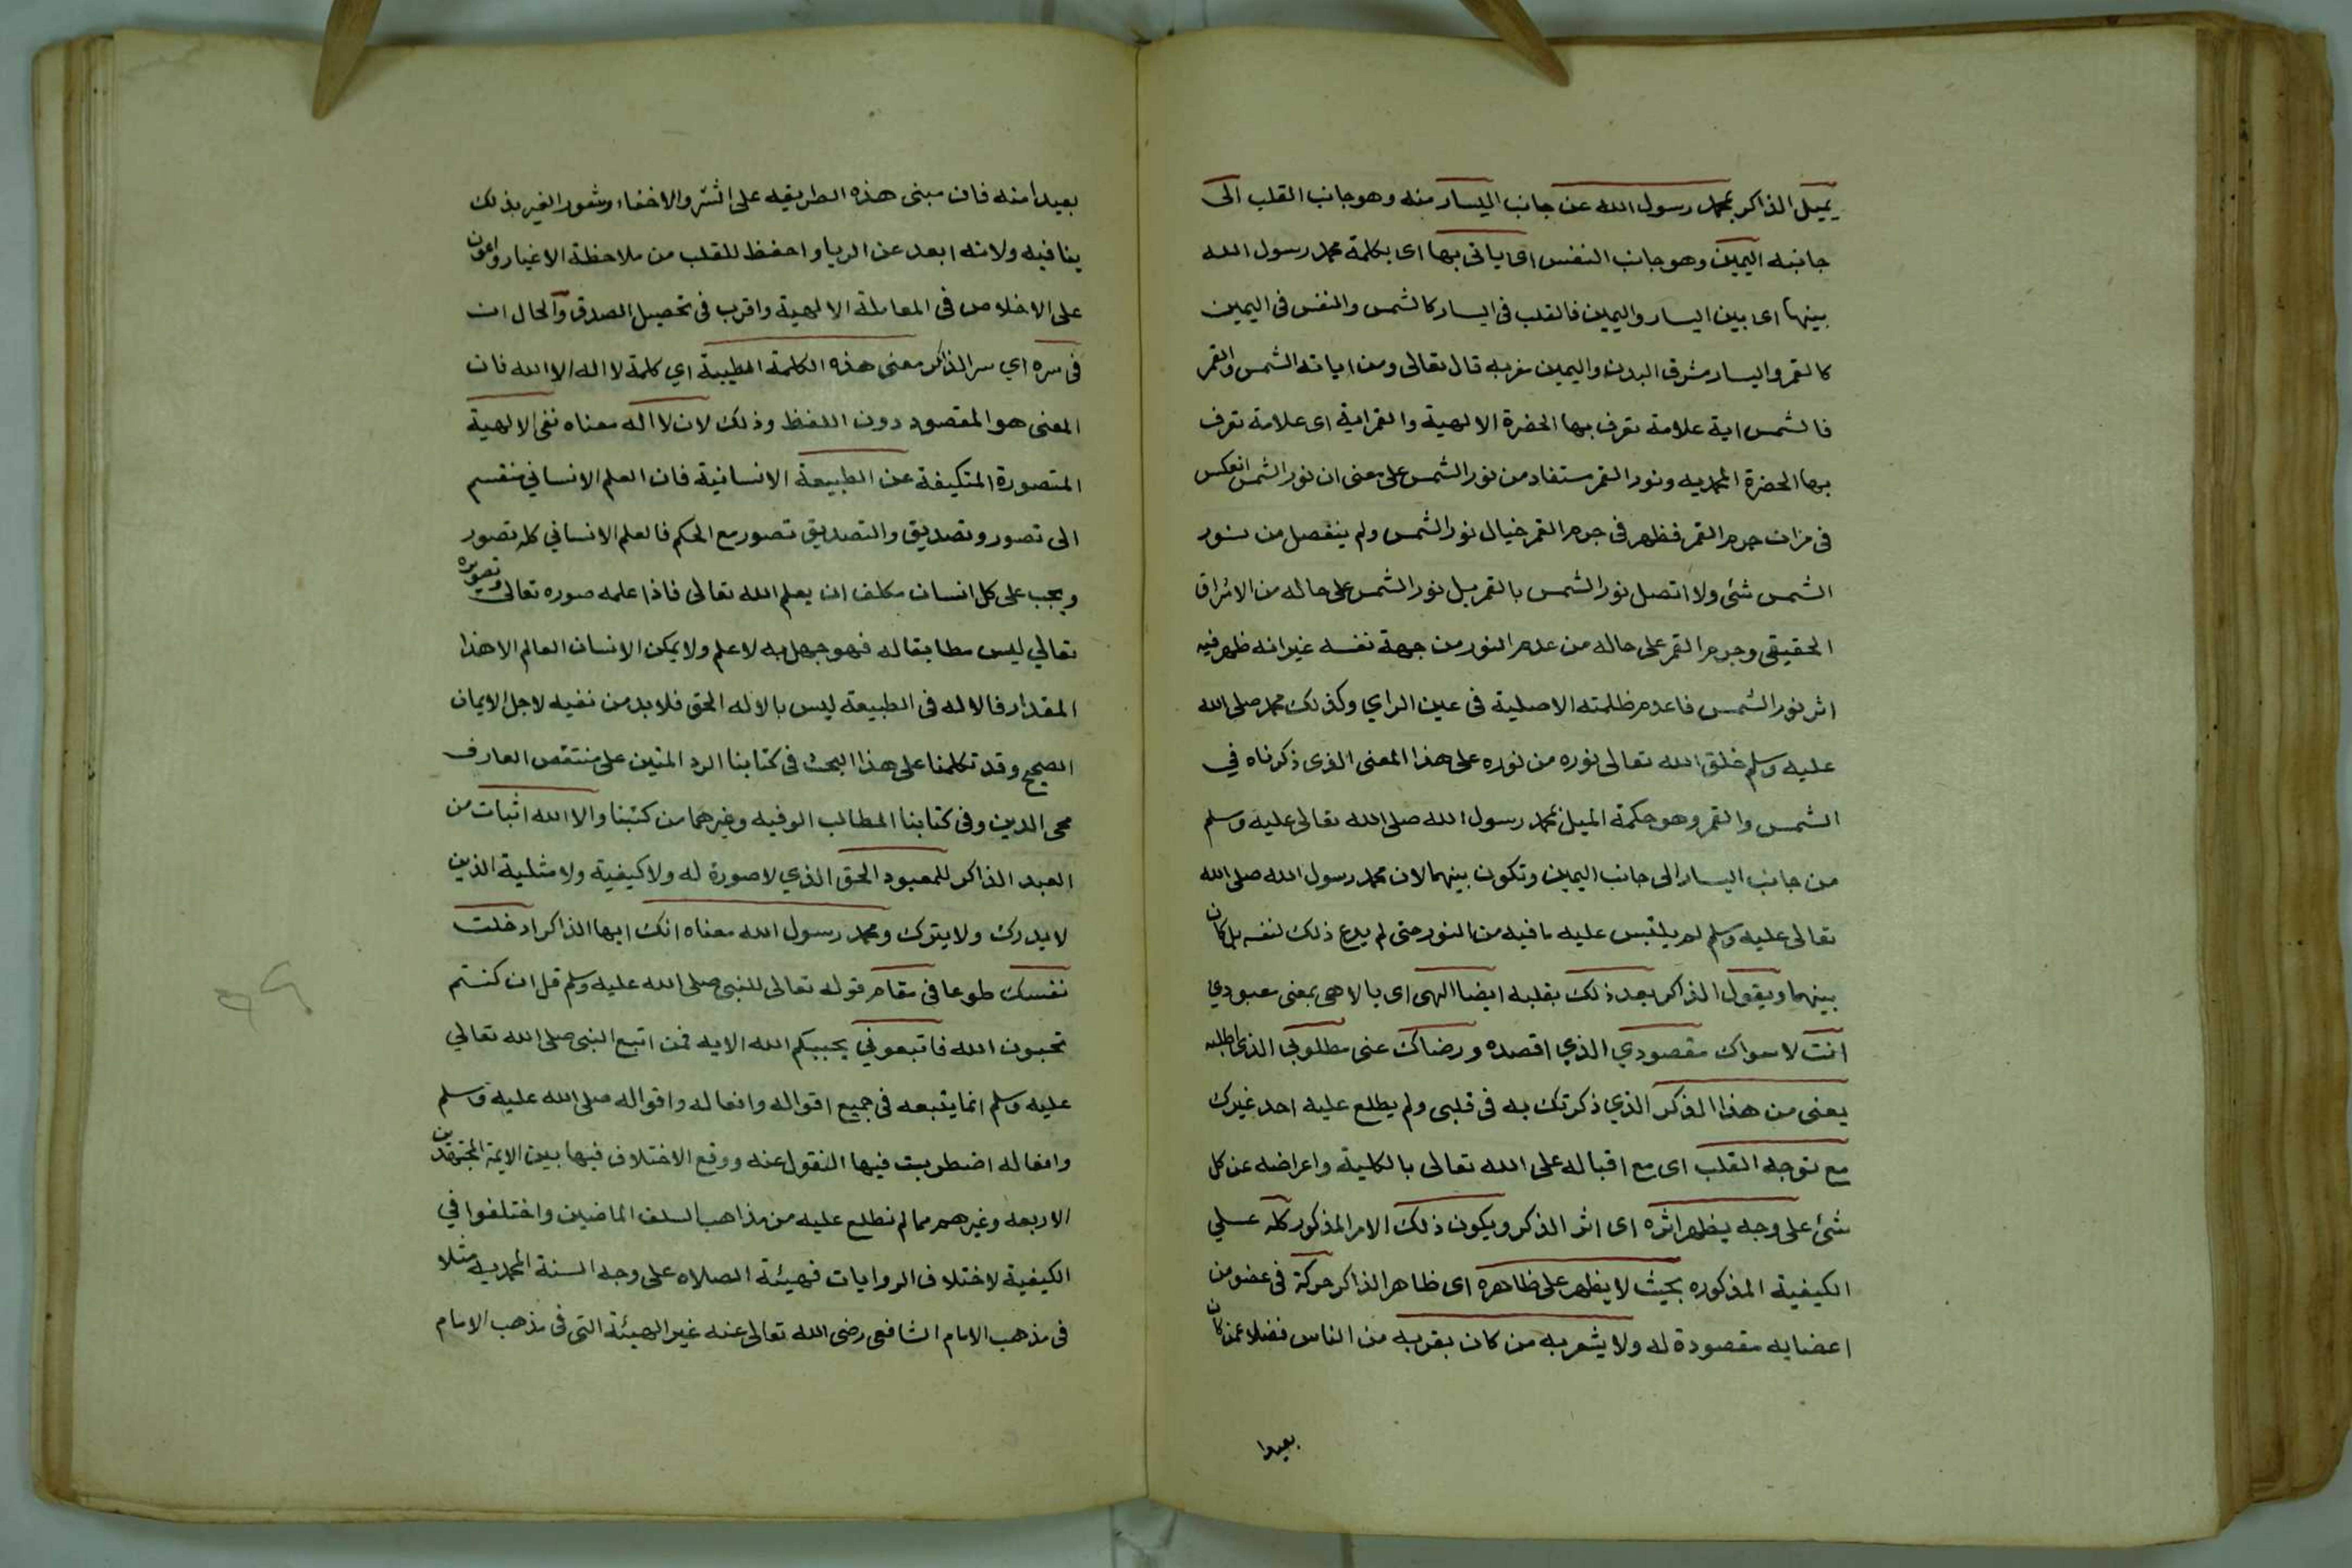 يميل الذاكر بمحمد رسول الله عن جانب اليسار منه وهو جانب القلب الى
جانبه اليمين وهو جانب النفس اى ياتى بها اى بكلمة محمد رسول الله
بينهما اى بين اليسار واليمين فالقلب فى اليسار كالشمس والنفس فى اليمين
كالقمر واليسار مشرق البدن واليمين مغربه قال تعالى ومن اياته الشمس والقمر
فالشمس اية علامة تعرف بها الحضرة الالهية والقمر اية اى علامة تعرف
بها الحضرة المحمديه ونور القمر مستفاد من نور الشمس على معنى ان نور الشمس انعكس
فى مرات جرم القمر فظهر فى جرم القمر خيال نور الشمس ولم ينفصل من نور
الشمس شئ ولا اتصل نور الشمس بالقمر بل نور الشمس على حاله من الاشراق
الحقيقى وجرم القمر على حاله من عدم النور من جهة نفسه غير انه ظهر فيه
اثر نور الشمس فاعدم ظلمته الاصلية فى عين الراي وكذلك محمد صلى الله
عليه وسلم خلق الله تعالى نوره من نوره على هذا المعنى الذى ذكرناه في
الشمس والقمر وهو حكمة الميل بمحمد رسول الله صلى الله تعالى عليه وسلم
من جانب اليسار الى جانب اليمين وتكون بينهما لان محمد رسول الله صلى الله
تعالى عليه وسلم لم يلتبس عليه ما فيه من النور حتى لم يدع ذلك لنفسه بل كان
بينهما ويقول الذاكر بعد ذلك بقلبه ايضا الهى اى يا لاهى بمعنى معبودي
انت لا سواك مقصودي الذي اقصده ورضاك عنى مطلوبي الذى اطلبه
يعنى من هذا الذكر الذي ذكرتك به فى قلبى ولم يطلع عليه احد غيرك
مع توجه القلب اى مع اقباله على الله تعالى بالكلية واعراضه عن كل
شئ على وجه يظهر اثره اى اثر الذكر ويكون ذلك الامر المذكور كله على
الكيفية المذكوره بحيث لا يظهر على ظاهره اى ظاهر الذاكر حركة فى عضو من
اعضايه مقصودة له ولا يشعر به من كان بقربه من الناس فضلا عمن كان
بعيدا
بعيدا منه فان مبنى هذه الطريقه على الستر والاخفاء وشعور الغير بذلك
ينافيه ولانه ابعد عن الريا واحفظ للقلب من ملاحظة الاغيار واعون
على الاخلاص فى المعاملة الالهية واقرب فى تحصيل الصدق والحال ان
فى سره اي سر الذاكر معنى هذه الكلمة الطيبة اي كلمة لا اله الا الله فان
المعنى هو المقصود دون اللفظ وذلك لان لا اله معناه نفى الالهية
المتصورة المتكيفة عن الطبيعة الانسانية فان العلم الانساني منقسم
الى تصور وتصديق والتصديق تصور مع الحكم فالعلم الانساني كله تصور
ويجب على كل انسان مكلف ان يعلم الله تعالى فاذا علمه صوره تعالى وتصويره
تعالي ليس مطابقا له فهو جهل به لا علم ولا يمكن الانسان العالم الا هذا
المقدار فالاله فى الطبيعة ليس بالاله الحق فلا بد من نفيه لاجل الايمان
الصحيح وقد تكلمنا على هذا البحث فى كتابنا الرد المتين على منتقص العارف
محى الدين وفى كتابنا المطالب الوفيه وغيرهما من كتبنا والا الله اثبات من
العبد الذاكر للمعبود الحق الذي لا صورة له ولا كيفية ولا مثلية الذين
لا يدرك ولا يترك ومحمد رسول الله معناه انك ايها الذاكر ادخلت
نفسك طوعا فى مقام قوله تعالى للنبى صلى الله عليه وسلم قل ان كنتم
تحبون الله فاتبعوني يحببكم الله الايه فمن اتبع النبى صلى الله تعالي
عليه وسلم انما يتبعه فى جميع اقواله وافعاله واقواله صلى الله عليه وسلم
وافعاله اضطربت فيها النقول عنه ووقع الاختلاف فيها بين الايمة المجتهدين
الاربعه وغيرهم مما لم نطلع عليه من مذاهب السلف الماضين واختلفوا في
الكيفية لاختلاف الروايات فهيئة الصلاه على وجه السنة المحمديه مثلا
فى مذهب الامام الشافعى رضى الله تعالى عنه غير الهيئة التى فى مذهب الامام